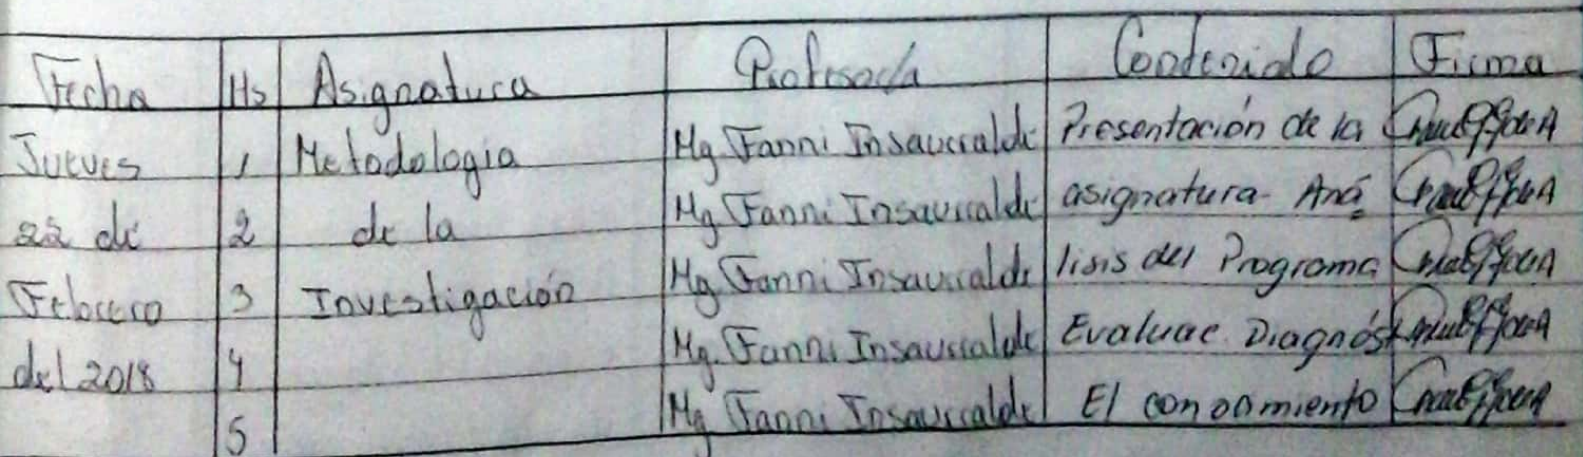 Fecha Hs Asignatura Profesora Contenido Firma
Jueves 1 Metodología Mg Fanni Insaurralde Presentación de la
22 de 2 de la Mg Fanni Insaurralde asignatura- Aná
Febrero 3 Investigación Mg Fanni Insaurralde lisis del Programa
del 2018 4 Mg. Fanni Insaurralde Evaluac. Diagnóst
5 Mg Fanni Insaurralde El conocimiento